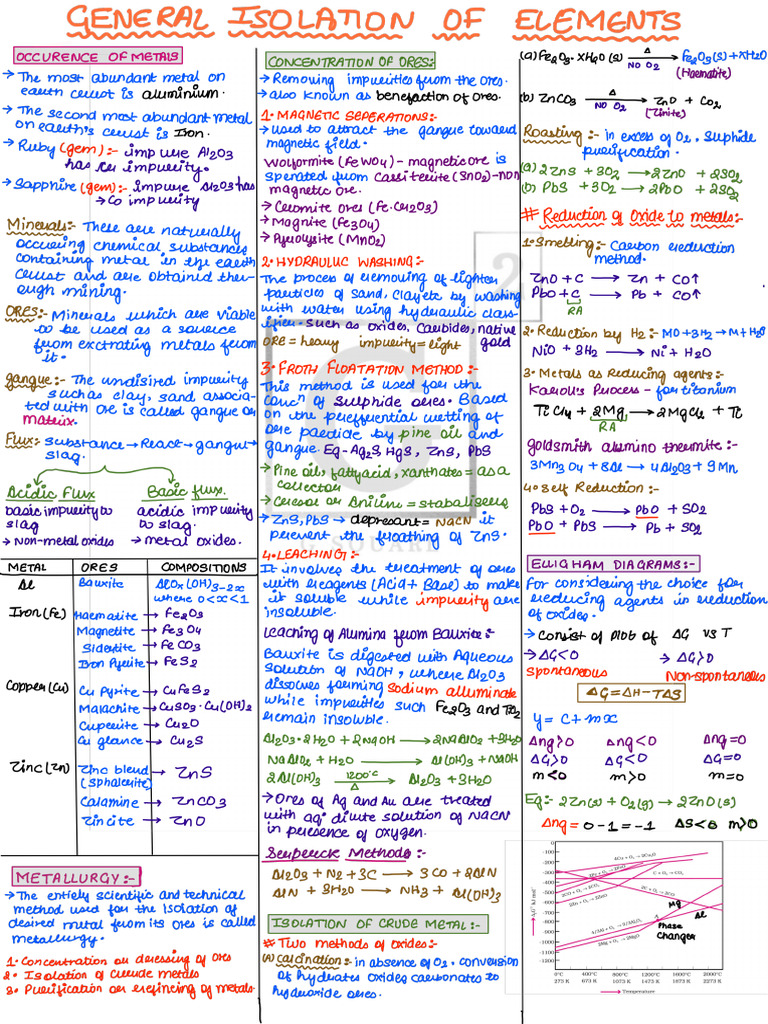 GENERAL ISOLATION OF ELEMENTS
OCCURENCE OF METALS
→ The most abundant metal on
earth crust is aluminium.
→ The second most abundant metal
on earth's crust is Iron.
→ Ruby (gem):- impure Al2O3
has Cr impurity.
→ Sapphire (gem):- impure Al2O3 has
→ Co impurity
Minerals:- These are naturally
occuring chemical substances
containing metal in the earth
crust and are obtained ther-
ough mining.
ORES:- Minerals which are viable
to be used as a source
from exctrating metals from
it.
gangue:- The undisired impurity
such as clay, sand associa-
ted with ore is called gangue or
matrix.
Flux:- substance → React → gangue →
slag.
Acidic Flux Basic flux.
basic impurity to acidic impurity
slag to slag.
→ Non-metal oxides → metal oxides.
METAL ORES COMPOSITIONS
Al Bauxite AlOx(OH)3-2x
where 0<x<1
Iron(Fe) Haematite → Fe2O3
Magnetite → Fe3O4
Sidertite → FeCO3
Iron Pyrite → FeS2
Copper(Cu) Cu Pyrite → CuFeS2
Malachite → CuSO3·Cu(OH)2
Cuperite → Cu2O
Cu glance → Cu2S
Zinc(Zn) Zinc blend → ZnS
(sphalerite)
Calamine → ZnCO3
Zincite → ZnO
METALLURGY:-
→ The entiely scientific and technical
method used for the isolation of
desired metal from its ores is called
metallurgy.
1· Concentration or dressing of ores
2· Isolation of crude metals
3· Purification or refineing of metals.
CONCENTRATION OF ORES:-
→ Removing impurities from the ores.
→ also known as benefaction of ores.
1· MAGNETIC SEPERATIONS:-
→ used to attract the gangue toward
magnetic field.
Wolformite (FeWO4) - magnetic ore is
sperated from Cassiterite (SnO2)-non
magnetic ore.
→ Ceromite ores (Fe·Cr2O3)
→ Magnite (Fe3O4)
→ Pyrolysite (MnO2)
2· HYDRAULIC WASHING:-
The proces of removing of lighter
particles of sand, clay etc by washing
with water using hydraulic class-
ifier. such as oxides, Carbides, native
ORE = heavy impurity = light gold
3· FROTH FLOATATION METHOD:-
This method is used for the
concn of sulphide ores. Based
on the preffrential wetting of
ore particle by pine oil and
gangue. Eg - Ag2S, HgS, ZnS, PbS
→ Pine oil, fatty acid, xanthates = as a
collector
→ Cresor or Aniline = stabalisers
→ ZnS, PbS → depresant = NaCN it
prevent the froathing of ZnS.
G SQUARE
4· LEACHING:-
It involves the treatment of ores
with reagents (Acid + Base) to make
it soluble while impurity are
insoluble.
Leaching of Alumina from Bauxite:-
Bauxite is digested with Aqueous
solution of NaOH, where Al2O3
dissolves forming sodium alluminate
while impurities such Fe2O3 and TiO2
remain insoluble.
Al2O3·2H2O + 2NaOH → 2NaAlO2 + 3H2O
NaAlO2 + H2O → Al(OH)3 + NaOH
2Al(OH)3 1200°C → Δ Al2O3 + 3H2O
→ Ores of Ag and Au are treated
with aq· dilute solution of NaCN
in presence of oxygen.
Serpereck Methods
Al2O3 + N2 + 3C → 3CO + 2AlN
AlN + 3H2O → NH3 + Al(OH)3
ISOLATION OF CRUDE METAL:-
# Two methods of oxides:-
(A) Calcination:- in absence of O2, conversion
of hydrates oxides carbonates to
hydroxide ores.
(a) Fe2O3·XH2O (s) Δ → NO O2 Fe2O3(s) + XH2O
(Haematite)
(b) ZnCO3 Δ → NO O2 ZnO + CO2
(Zinite)
Roasting:- in excess of O2, Sulphide
purification.
(a) 2ZnS + 3O2 → 2ZnO + 2SO2
(b) PbS + 3O2 → 2PbO + 2SO2
# Reduction of Oxide to metals:-
1· Smelting:- Carbon reduction
method.
ZnO + C → Zn + CO↑
PbO + C → Pb + CO↑
RA
2· Reduction by H2:- MO + 3H2 → M + H2O
NiO + 3H2 → Ni + H2O
3· Metals as Reducing agents:-
Karoll's Process - for titanium
TiCl4 + 2Mg → 2MgCl2 + Ti
RA
goldsmith alumino thermite:-
3Mn3O4 + 8Al → 4Al2O3 + 9Mn
4· Self Reduction:-
PbS + O2 → PbO + SO2
PbO + PbS → Pb + SO2
ELLIGHAM DIAGRAMS:-
For considering the choice for
reducing agents in reduction
of oxides.
→ Consist of Plot of ΔG vs T
→ ΔG<0 → ΔG>0
spontaneous Non-spontaneous
ΔG=ΔH-TΔS
y = c + mx
Δng>0 Δng<0 Δng=0
ΔG>0 ΔG<0 ΔG=0
m<0 m>0 m=0
Eg:- 2Zn(s) + O2(g) → 2ZnO(s)
Δng = 0-1 = -1 ΔS<0 m>0
0
-100
-200
-300
-400
-500
-600
-700
-800
-900
-1000
-1100
-1200
ΔfG° kJ mol-1
4Cu + O2 → 2Cu2O
C + O2 → CO2
2C + O2 → 2CO
2CO + O2 → 2CO2
2Zn + O2 → 2ZnO
Mg
Al
Phase
Changer
4/3Al + O2 → 2/3Al2O3
2Mg + O2 → 2MgO
0°C 400°C 800°C 1200°C 1600°C 2000°C
273 K 673 K 1073 K 1473 K 1873 K 2273 K
Temperature